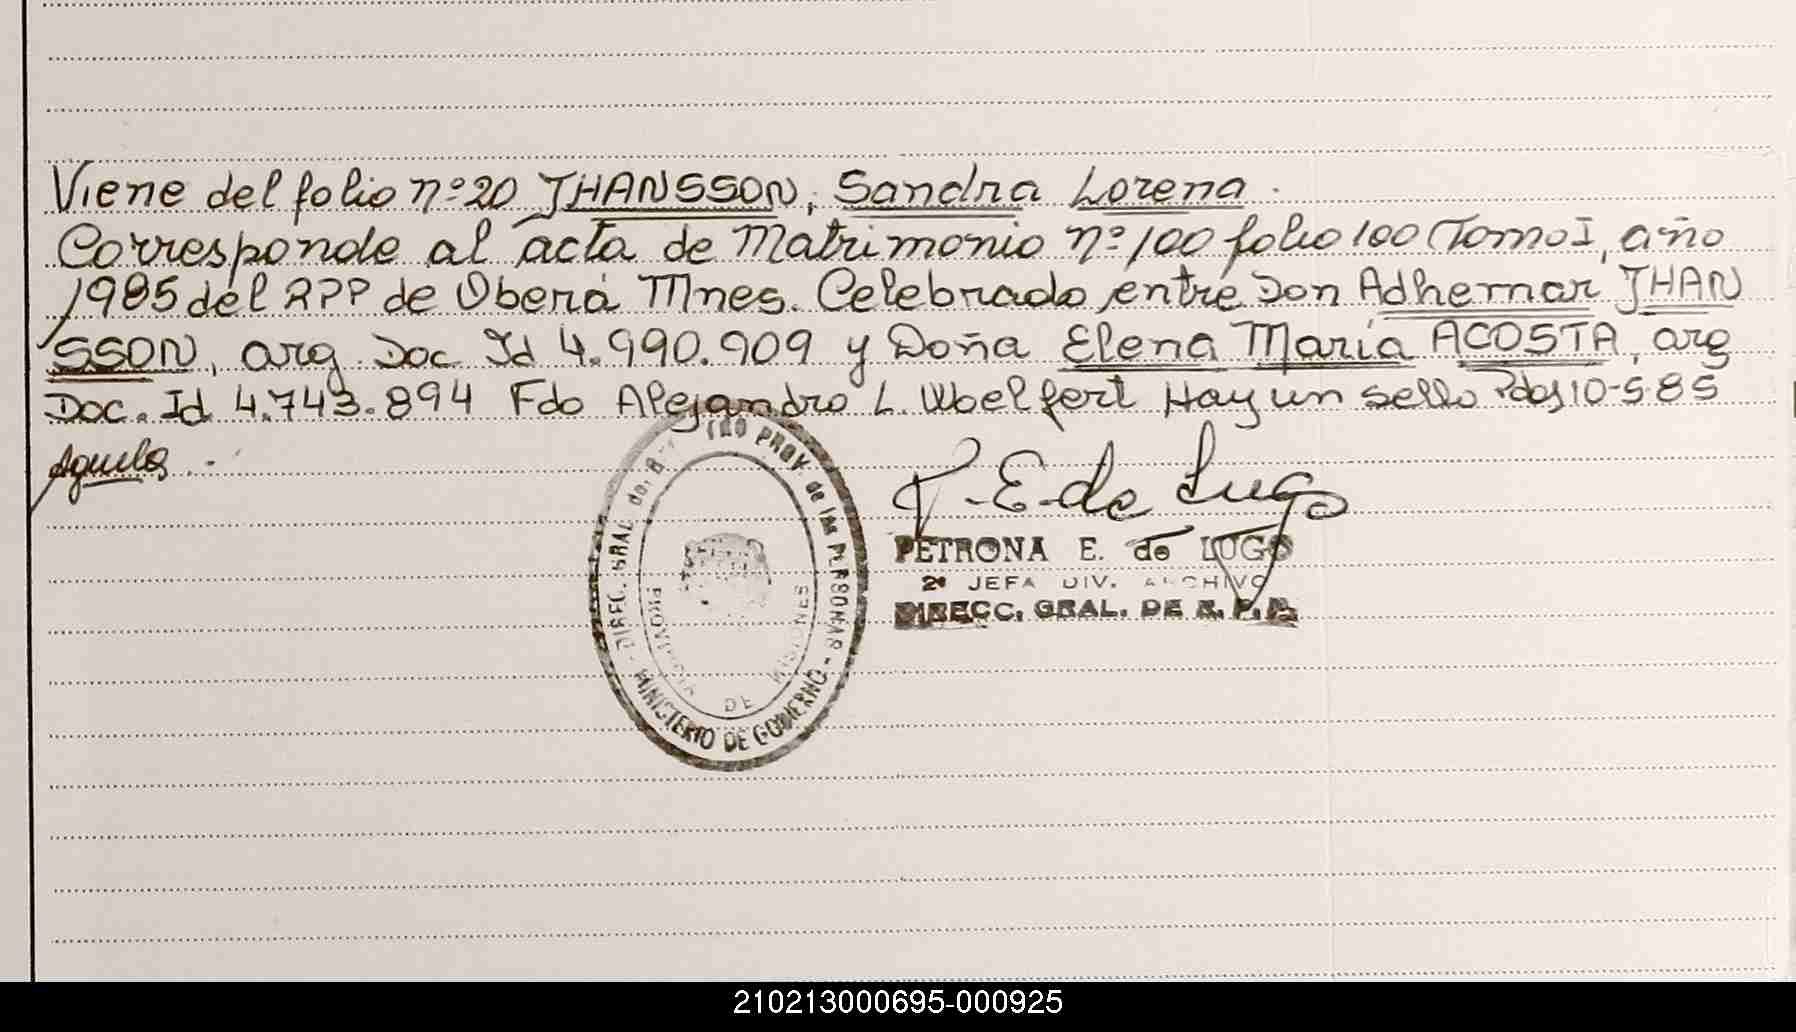 Viene del folio nº 20 JHANSSON, Sandra Lorena.
Corresponde al acta de Matrimonio nº 100 folio 100 (Tomo I, año
1985 del RPP de Oberá Mnes. Celebrado entre Don Adhemar JHAN
SSON, arg. Doc Id 4.990.909 y Doña Elena María ACOSTA, arg
Doc. Id 4.743.894 Fdo Alejandro L. Woelfert Hay un sello Pdas 10-5-85
P. E. de Lugo
PETRONA E. de LUGO
2ª JEFA DIV. ARCHIVO
DIRECC. GRAL. DE R. P. P.
DIREC. GRAL. del PROV. de las PERSONAS
PROVINCIA DE MISIONES
MINISTERIO DE GOBIERNO
210213000695-000925